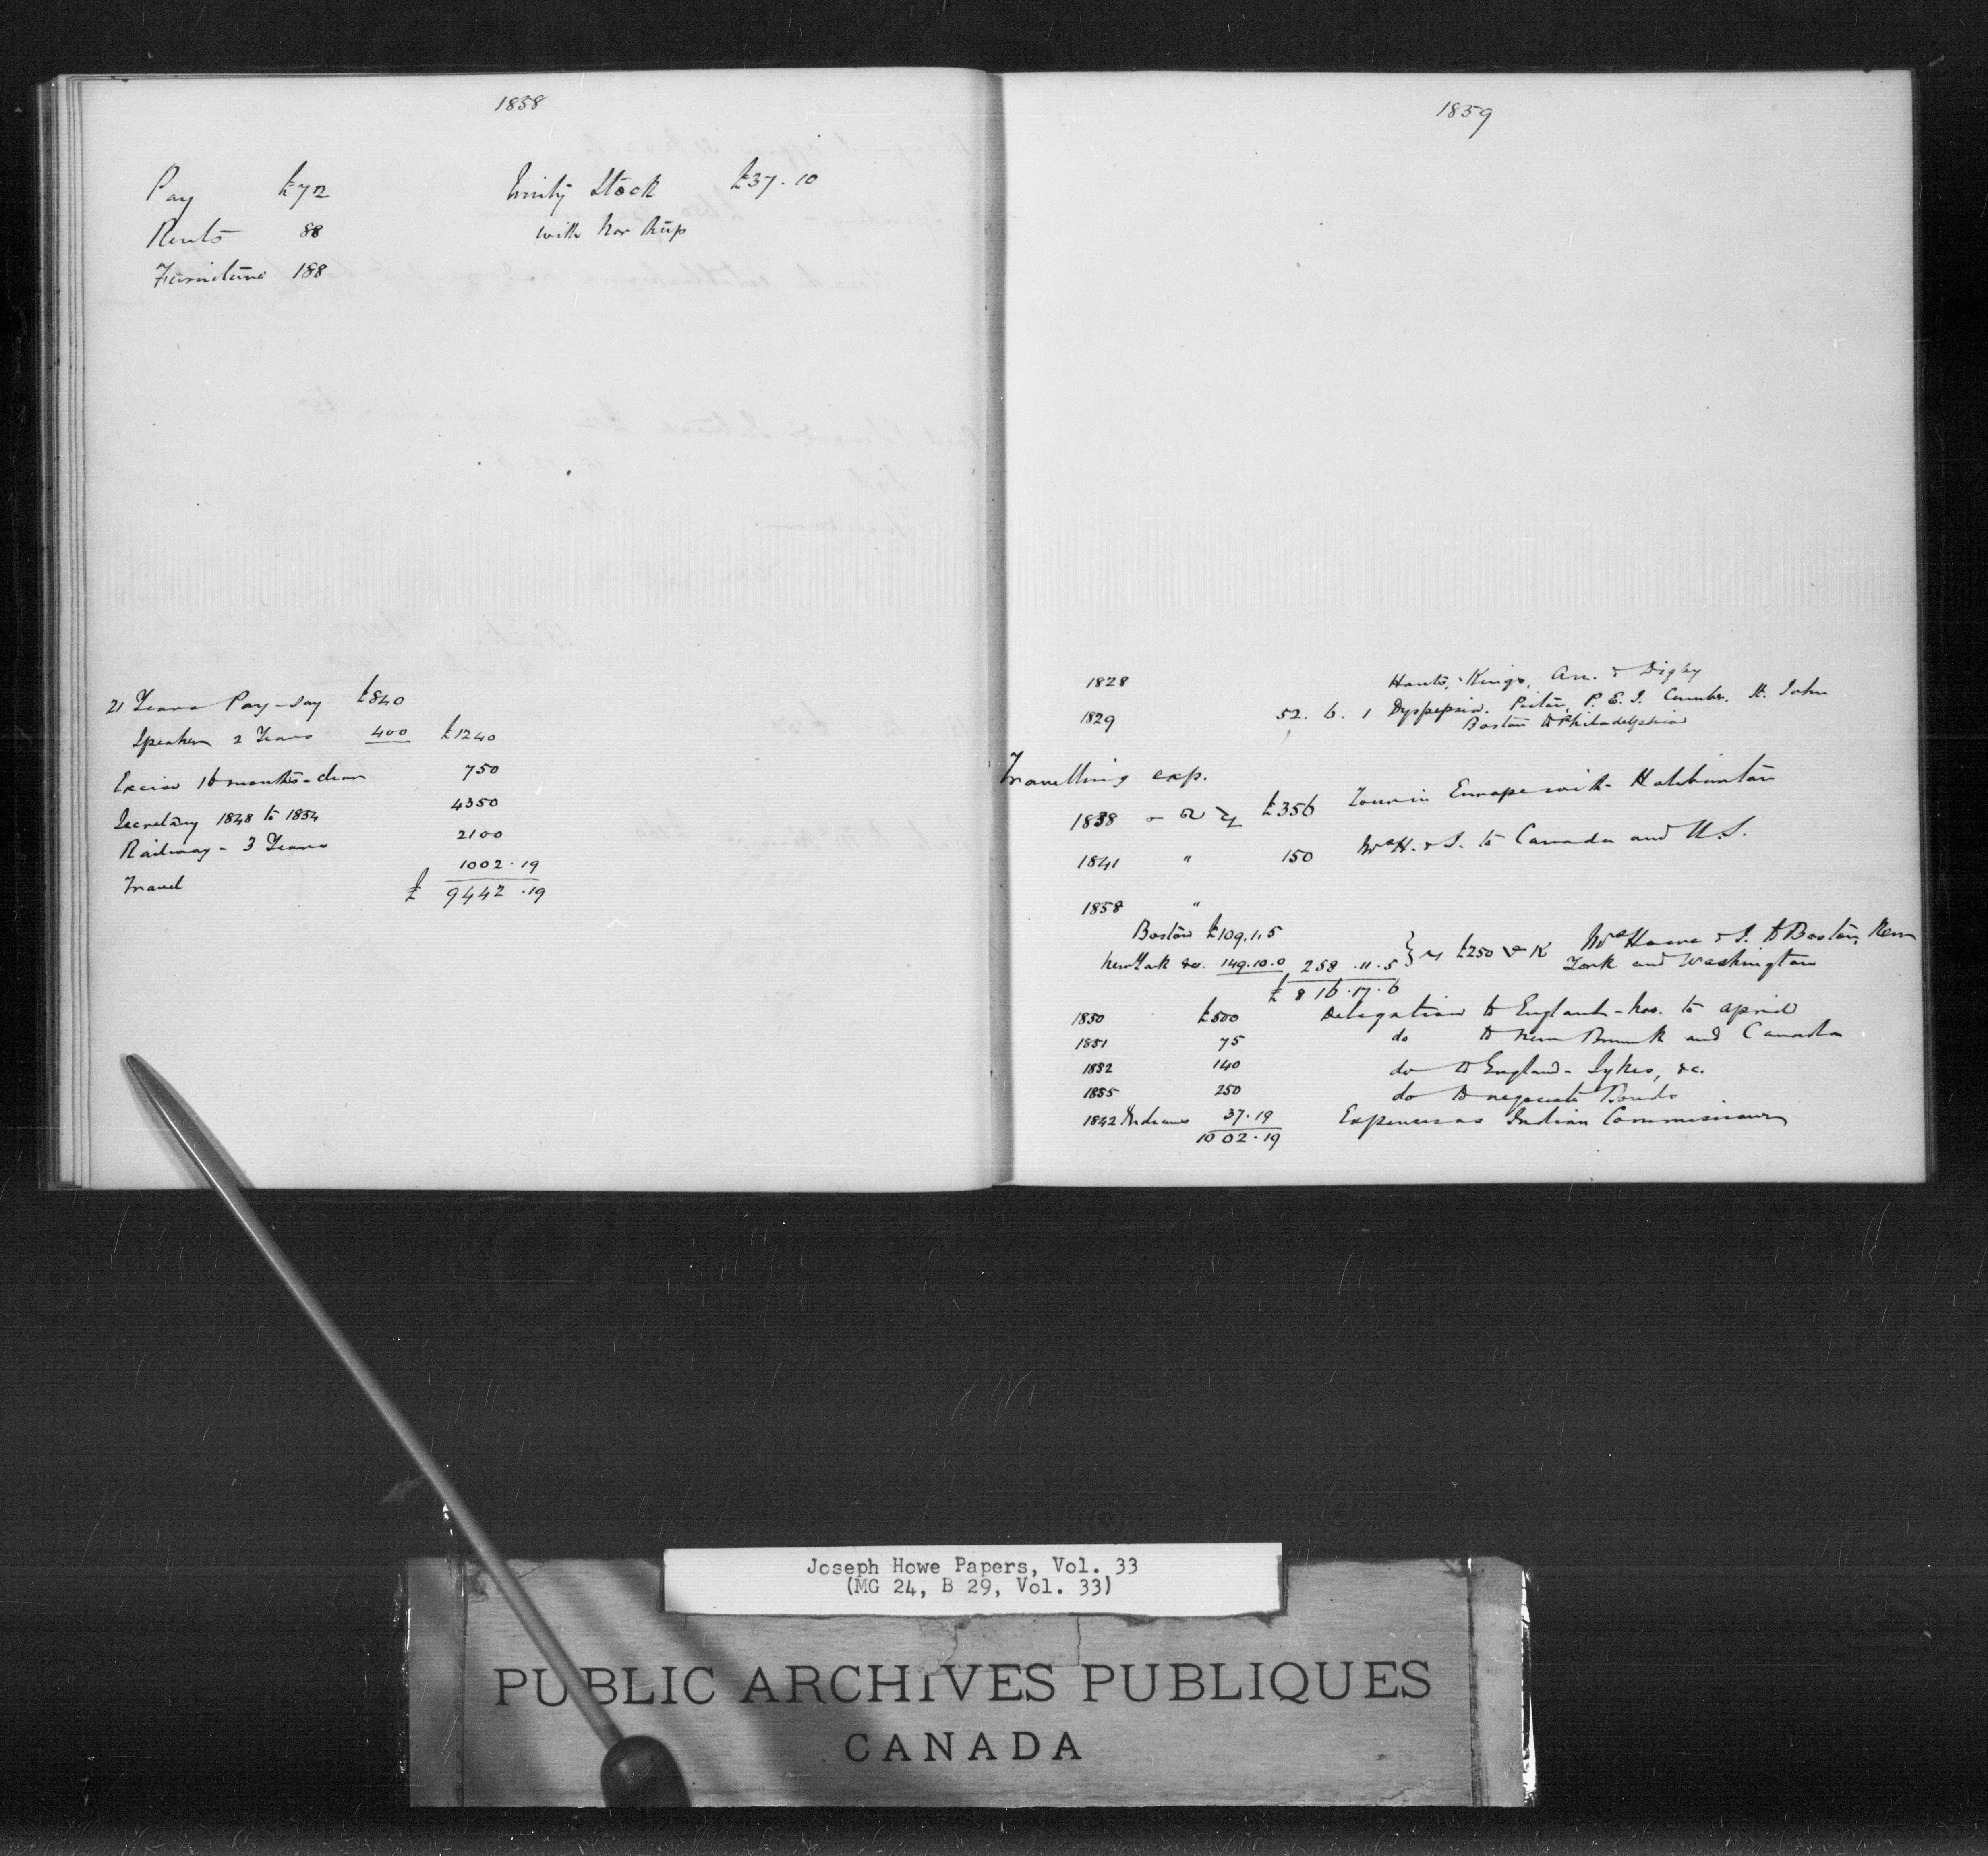 1858
Pay £72 Emily Stock £37.10
Rents 88 with Nor
Furniture 188
21 Years Pay - say £840
Speaker 2 Years 400 £1240
Excise 16 months - clear 750
Secretary 1848 to 1854 4350
Railway - 3 Years 2100
Travel 1002.19
£ 9442.19
1859
1828 Hants, Kings, An. & Digby
1829 52.6.1 Dyspepsia. Pictou, P. E. I. Cumber. St. John
Boston to Philadelphia
Travelling exp.
1838 - £356 Tour in Europe with Haliburton
1841 " 150 Mrs H. & I. to Canada and U.S.
1858 "
Boston £109.1.5
New York &c. 149.10.0 258.11.5 } £250 Mrs Howe & I. to Boston, New
York and Washington
£ 816.17.6
1850 £500 Delegation to England - Nov. to April
1851 75 do to New Brunk and Canada
1852 140 do to England - Sykes, &c.
1855 250 do to negociate Bonds
1842 Indians 37.19 Expenses as Indian Commissioner
1002.19
Joseph Howe Papers, Vol. 33
(MG 24, B 29, Vol. 33)
PUBLIC ARCHIVES PUBLIQUES
CANADA